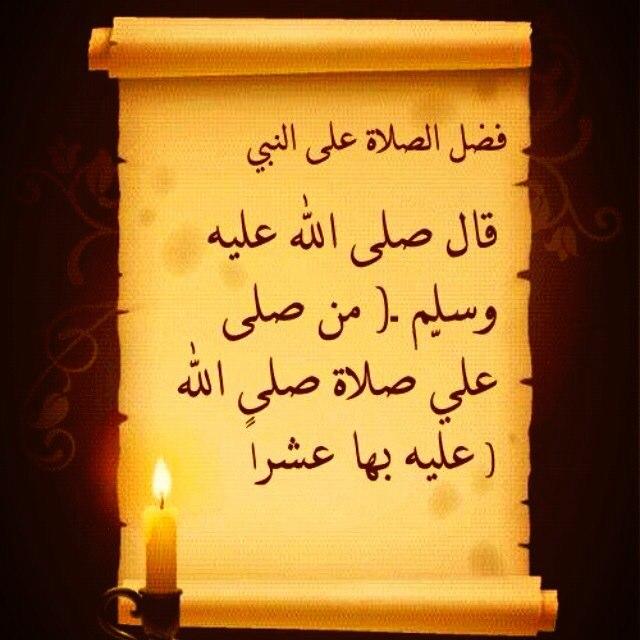 فضل الصلاة على النبي
قال صلى الله عليه
وسلّم .( من صلى
علي صلاة صلى الله
عليه بها عشرا )